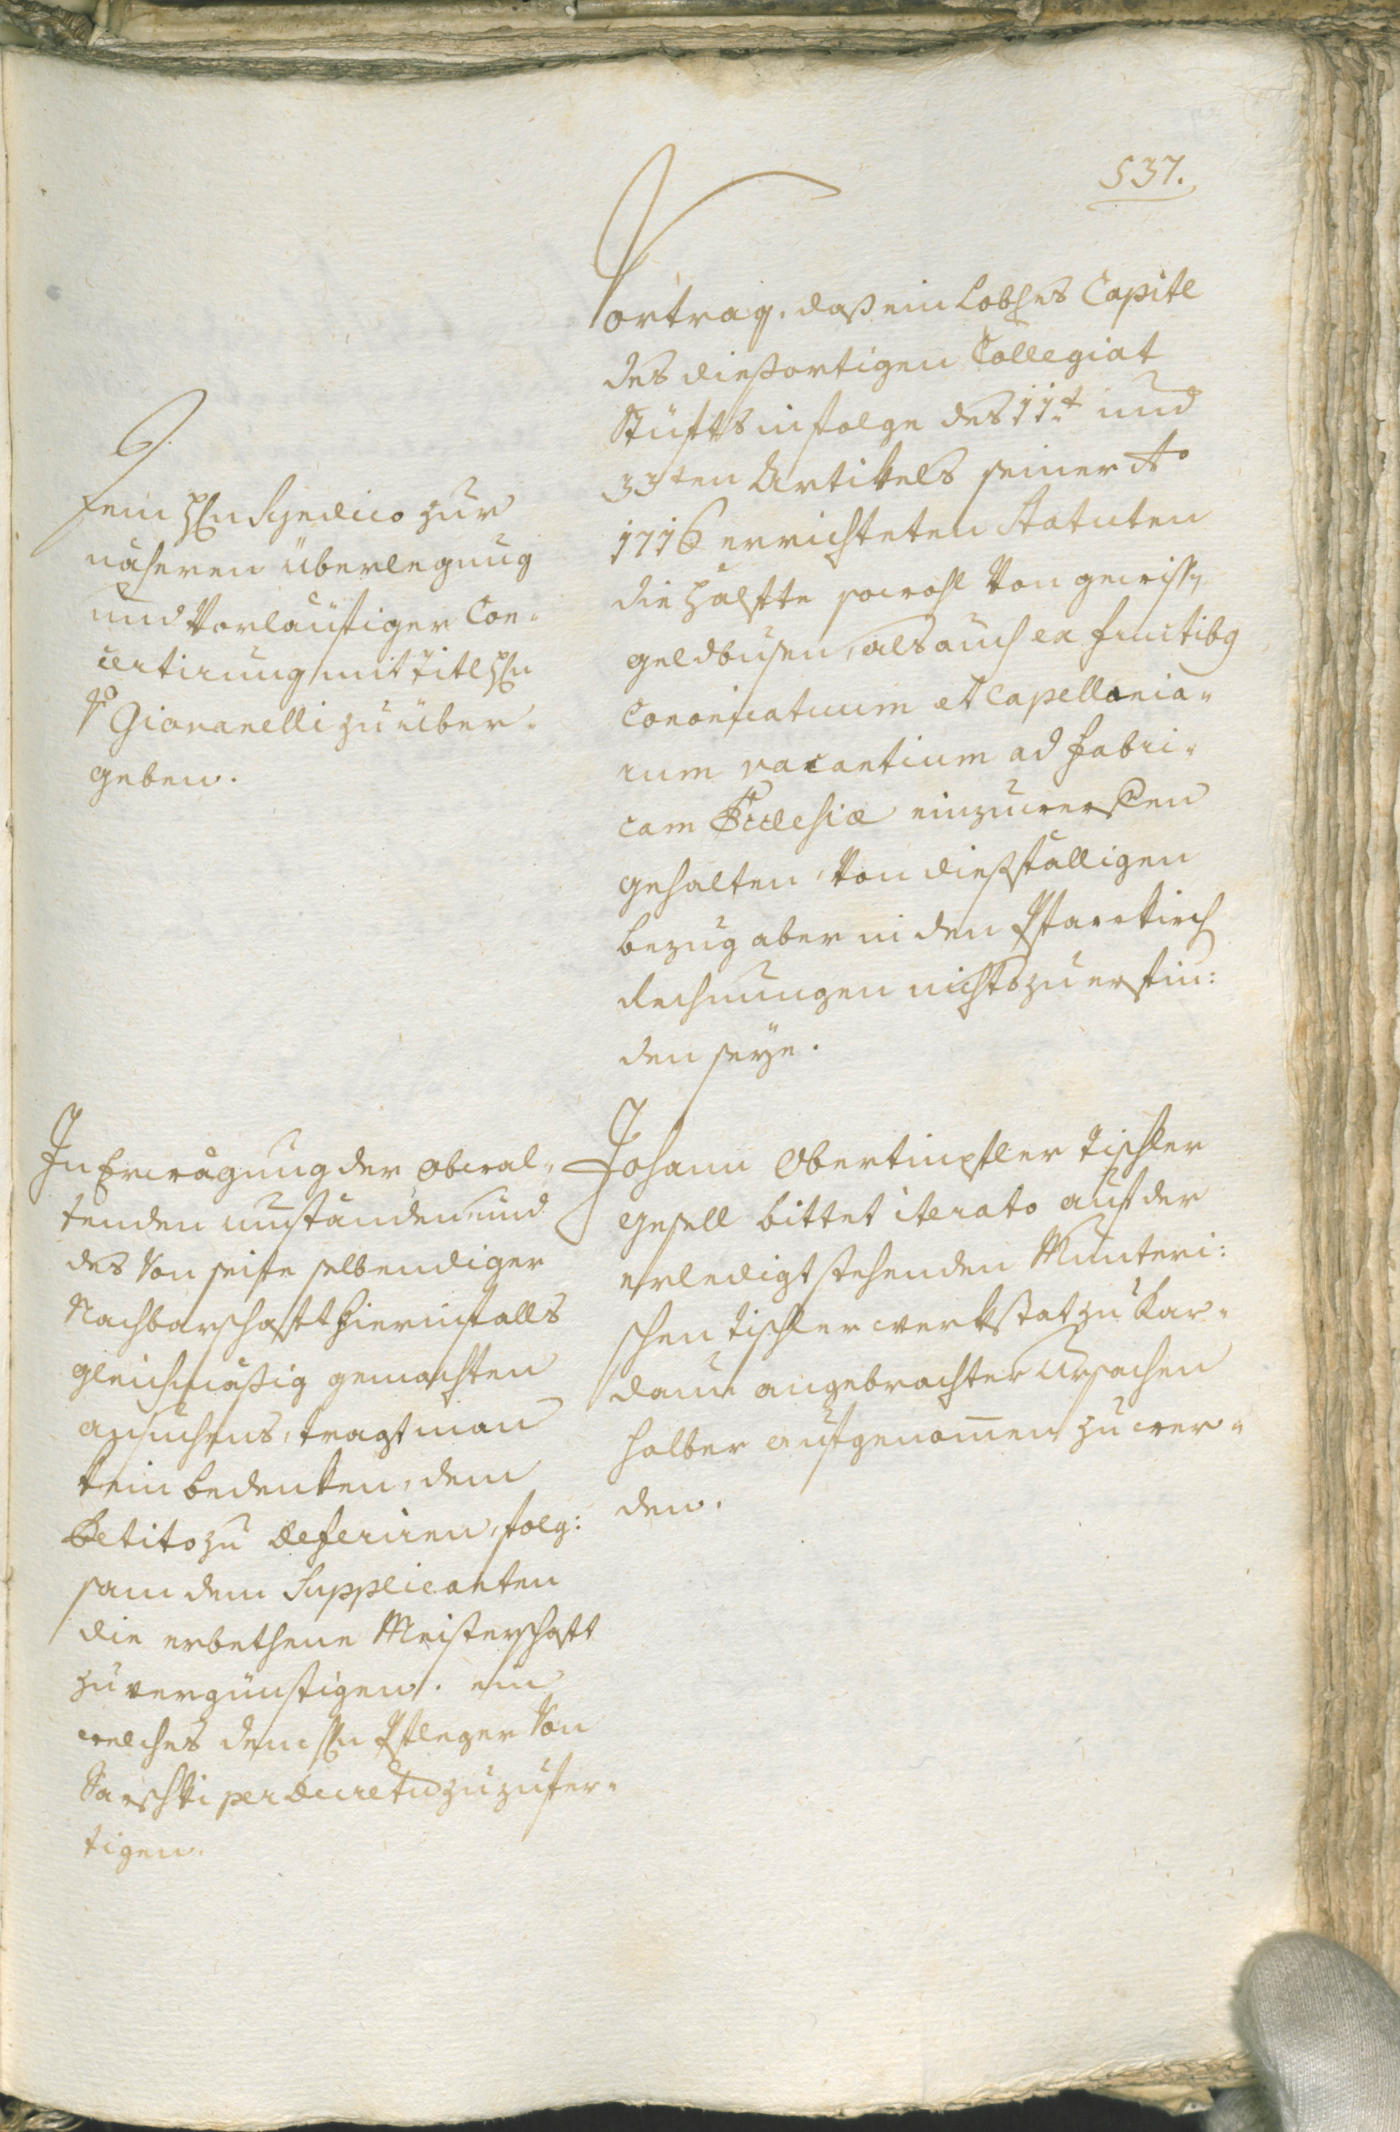 537.
Vortrag. daß ein Lobhes Capitl
des dießortigen Collegiat
Stüffts infolge des 11t und
33ten Artikels seiner Ao
1716 errichteten Statuten
die Hälffte sowohl von gewiss
geldbusen, als auch ex fructibg
Canonicatuum et Capellania-
rum vacantium ad fabri-
cam Ecclesiæ einzuwerffen
gehalten, von dießfälligen
bezug aber in den Pfarrkirch
Rechnungen nichts zu erfin:
den seye.
Dem Hln Syndico zur
näheren überlegung
und vorläufiger Con-
certirung mit Titl Hln
v Giovanelli zu über-
geben.
Johann Obertimpfler Tischler
gesell bittet iterato auf der
erledigt stehenden Munteri:
schen Tischlerwerkstat zu Kar-
daun angebrachter Ursachen
halber aufgenommen zu wer-
den.
In Erwägung der obwal-
tenden umständen und
des von seite selbendiger
Nachbarschafft hierinfalls
gleichmäßig gemachten
ansuchens, tragt man
kein bedenken, dem
Petito zu deferiren, folg:
sam dem Supplicanten
die erbethene Meisterschafft
zu vergünstigen. ein
welches dem Hln Pfleger von
per Decretu zuzufer-
tigen.